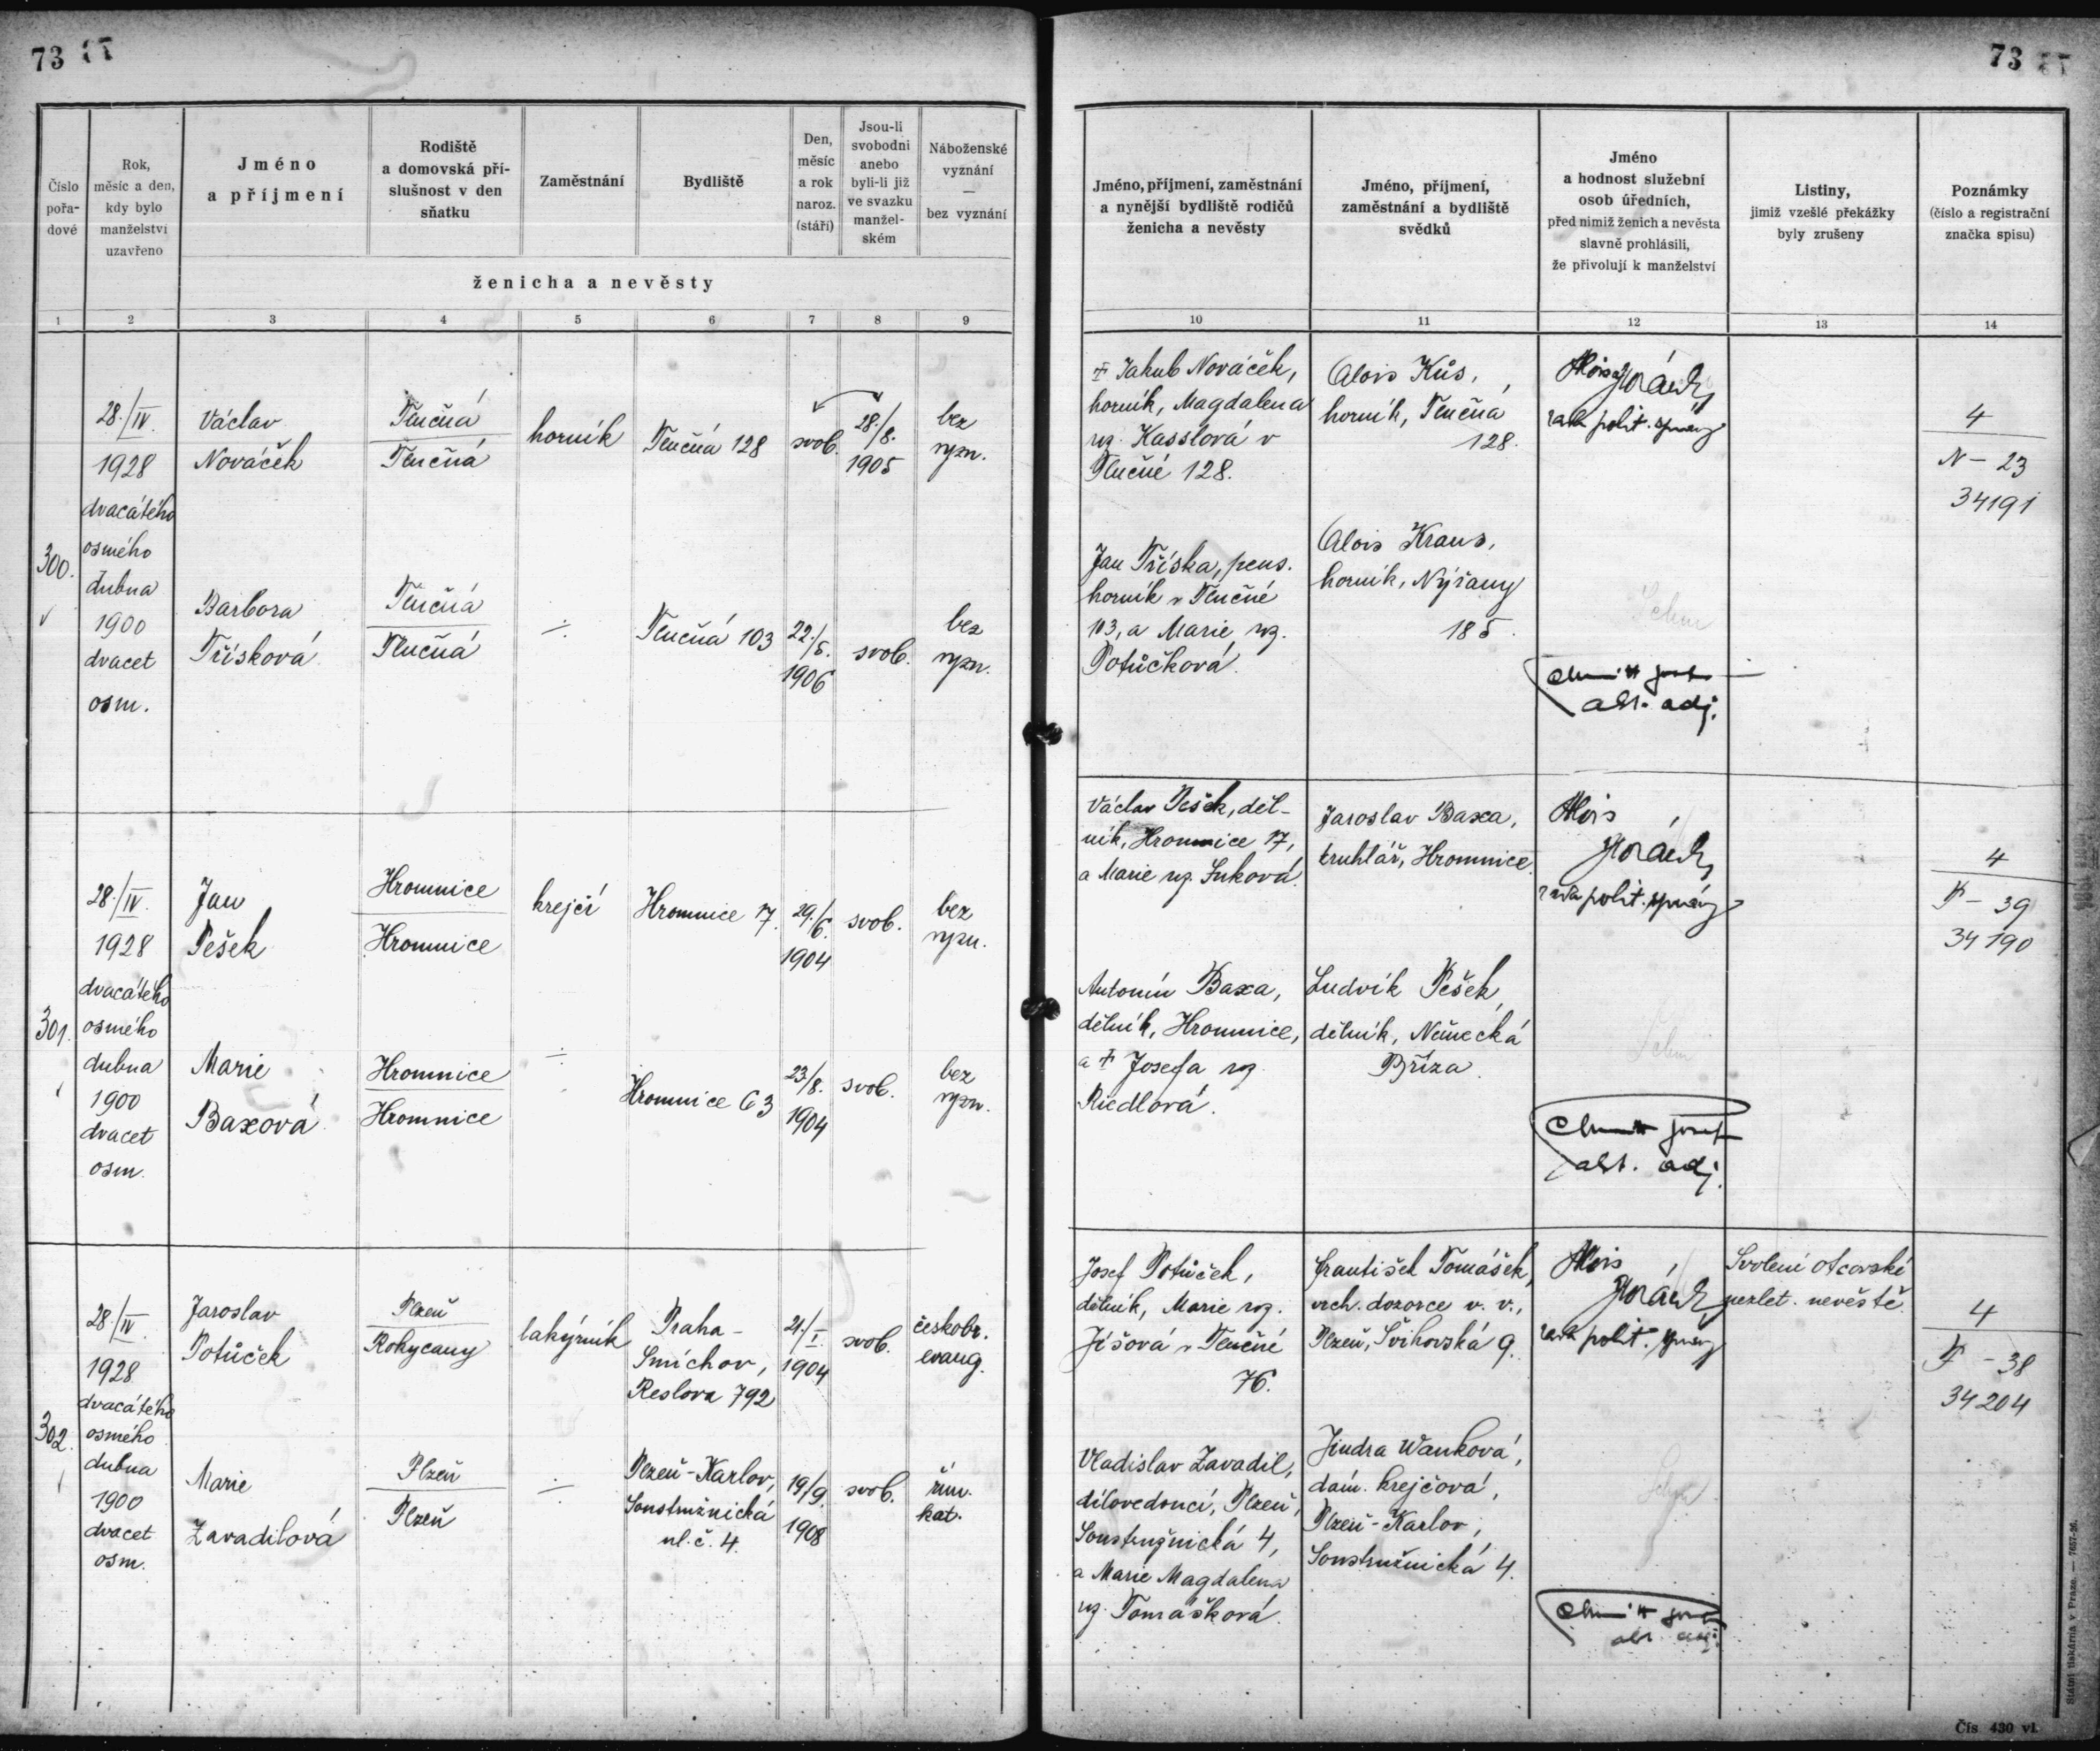 73
73
Číslo
pořa-
dové
Rok,
měsíc a den,
kdy bylo
manželství
uzavřeno
Jméno
a příjmení
Rodiště
a domovská pří-
slušnost v den
sňatku
Zaměstnání
Bydliště
Den,
měsíc
a rok
naroz.
(stáří)
Jsou-li
svobodni
anebo
byli-li již
ve svazku
manžel-
ském
Náboženské
vyznání
—
bez vyznání
ženicha a nevěsty
1 2 3 4 5 6 7 8 9
Jméno, příjmení, zaměstnání
a nynější bydliště rodičů
ženicha a nevěsty
Jméno, příjmení,
zaměstnání a bydliště
svědků
Jméno
a hodnost služební
osob úředních,
před nimiž ženich a nevěsta
slavně prohlásili,
že přivolují k manželství
Listiny,
jimiž vzešlé překážky
byly zrušeny
Poznámky
(číslo a registrační
značka spisu)
10 11 12 13 14
300.
28./IV.
1928
dvacátého
osmého
dubna
1900
dvacet
osm.
Václav
Nováček
Tlučná
Tlučná
horník
Tlučná 128
svob.
28./8.
1905
bez
vyzn.
Barbora
Třísková
Tlučná
Tlučná
÷
Tlučná 103
22./5.
1906
svob.
bez
vyzn.
† Jakub Nováček,
horník, Magdalena
roz. Kasslová v
Tlučné 128.
Jan Tříska, pens.
horník v Tlučné
103, a Marie roz.
Potůčková.
Alois Kůs,
horník, Tlučná
128.
Alois Kraus,
horník, Nýřany
185.
Alois Horách
rada polit. správy
abs. adj.
4
N – 23
34191
301.
28./IV.
1928
dvacátého
osmého
dubna
1900
dvacet
osm.
Jan
Pešek
Hromnice
Hromnice
krejčí
Hromnice 17.
29./6.
1904
svob.
bez
vyzn.
Marie
Baxová
Hromnice
Hromnice
÷
Hromnice 63
23./8.
1904
svob.
bez
vyzn.
Václav Pešek, děl-
ník, Hromnice 17,
a Marie roz. Suková.
Antonín Baxa,
dělník, Hromnice,
a † Josefa roz.
Riedlová.
Jaroslav Baxa,
truhlář, Hromnice.
Ludvík Pešek,
dělník, Německá
Bříza.
Alois
Horách
rada polit. správy
abs. adj.
4
P – 39
34190
302.
28./IV.
1928
dvacátého
osmého
dubna
1900
dvacet
osm.
Jaroslav
Potůček
Plzeň
Rokycany
lakýrník
Praha –
Smíchov,
Reslova 792
21./I.
1904
svob.
českobr.
evang.
Marie
Zavadilová
Plzeň
Plzeň
÷
Plzeň-Karlov,
Soustružnická
ul. č. 4.
19/9.
1908
svob.
řím.
kat.
Josef Potůček,
dělník, Marie roz.
Jíšová v Tlučné
76.
Vladislav Zavadil,
dílovedoucí, Plzeň,
Soustružnická 4,
a Marie Magdalena
roz. Tomášková.
František Tomášek,
vrch. dozorce v. v.,
Plzeň, Švihovská 9.
Jindra Wanková,
dám. krejčová,
Plzeň-Karlov,
Soustružnická 4.
Alois
Horách
rada polit. správy
abs. adj.
Svolení otcovské
nezlet. nevěstě.
4
P – 38
34204
Státní tiskárna v Praze. — 7657-26.
Čís 430 vl.